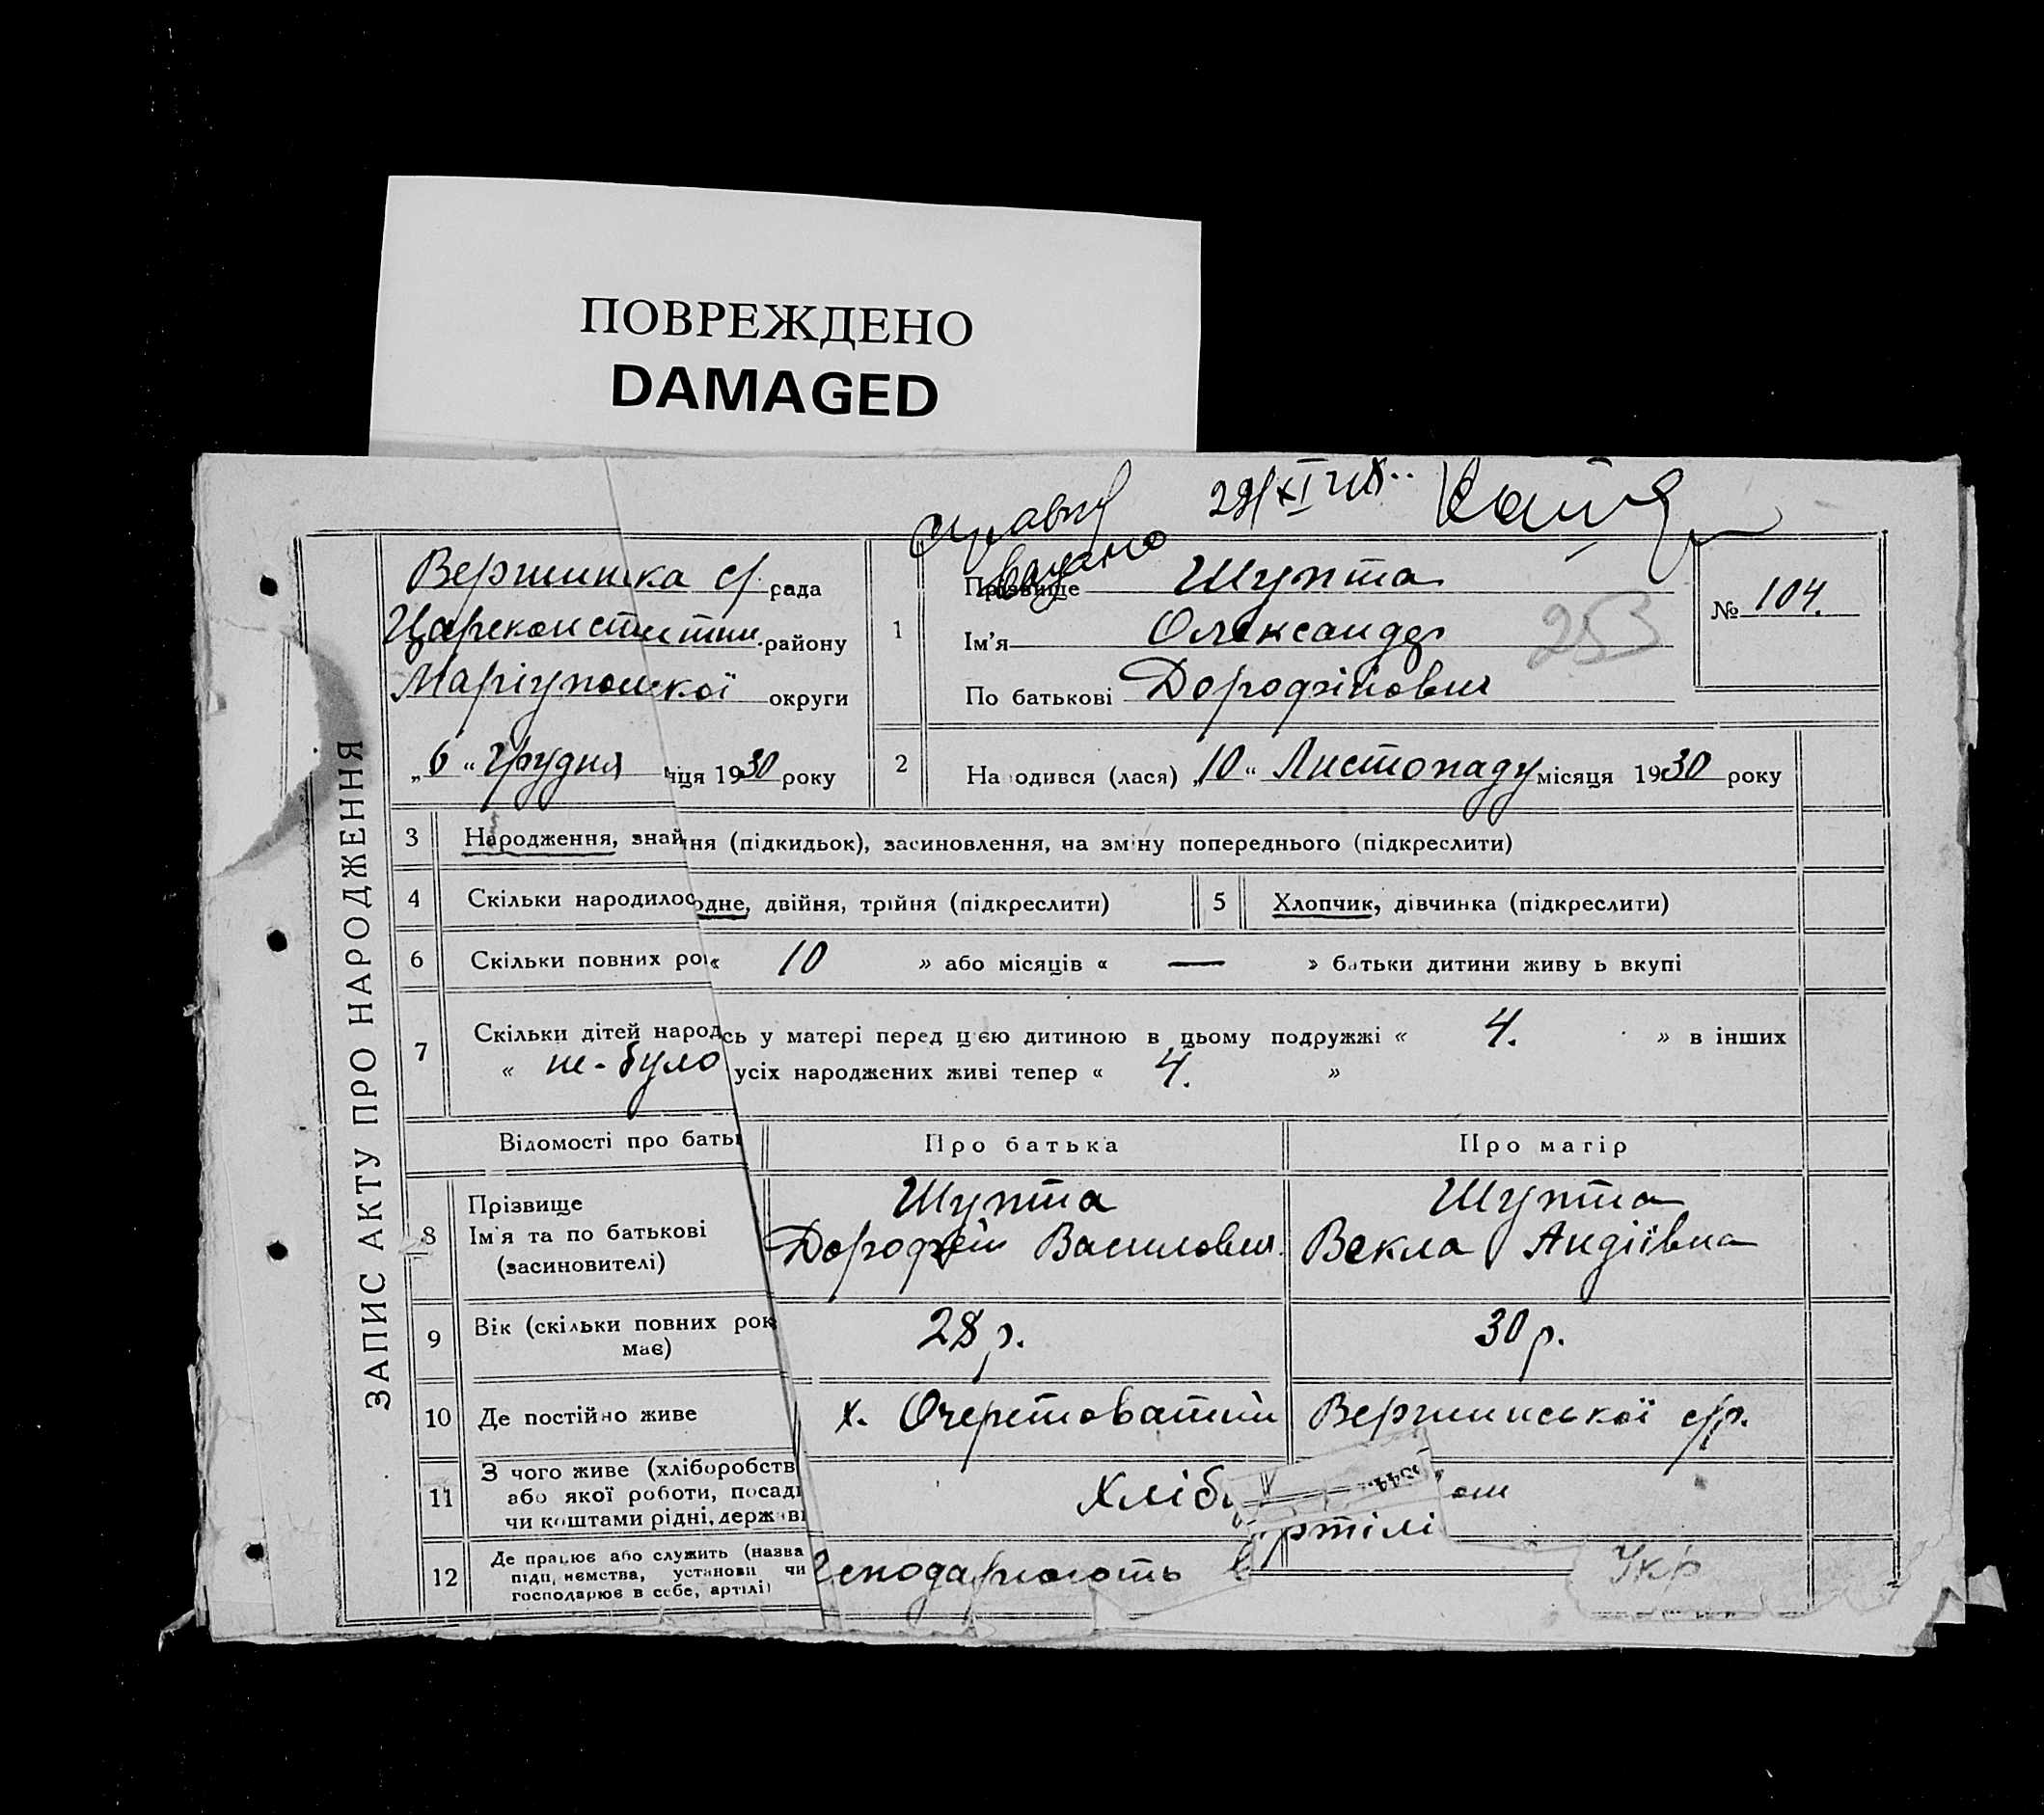 ПОВРЕЖДЕНО
DAMAGED
справку видано 29/XI
Вершинська с/ рада
Цареконститин. району
Маріупольської округи
„6“ грудня 1930 року
1
Прізвище Шупта
Ім'я Олександр
По батькові Дорофійович
253
№ 104.
2
На одився (лася) „10“ Листопаду місяця 1930 року
ЗАПИС АКТУ ПРО НАРОДЖЕННЯ
3 Народження, знай ння (підкидьок), засиновлення, на зміну попереднього (підкреслити)
4 Скільки народилос одне, двійня, трійня (підкреслити)
5 Хлопчик, дівчинка (підкреслити)
6 Скільки повних рок « 10 » або місяців « — » батьки дитини живу ь вкупі
7 Скільки дітей народ сь у матері перед цією дитиною в цьому подружжі « 4. » в інших
« не-було усіх народжених живі тепер « 4. »
Відомості про бать
Про батька
Про матір
8 Прізвище
Ім'я та по батькові
(засиновителі)
Шупта
Дорофій Василович
Шупта
Векла Андіївна
9 Вік (скільки повних рок
має)
28 р.
30 р.
10 Де постійно живе
х. Очеретоватий Вершинської с/р.
11 З чого живе (хліборобств
або якої роботи, посад
чи коштами рідні, держав
Хліб
12 Де працює або служить (назва
підприємства, установи чи
господарює в себе, артілі)
Господарюють в артілі
Укр